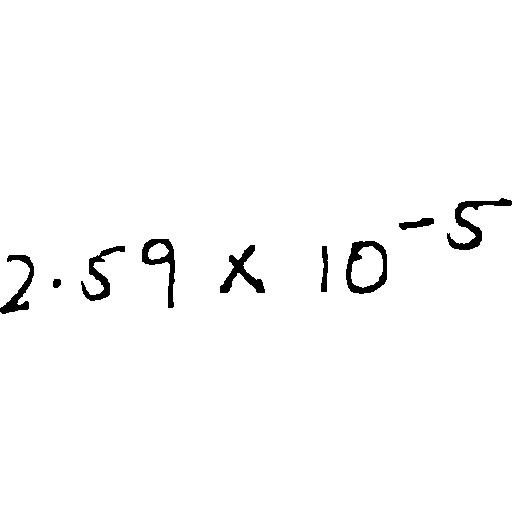 2.59 × 10⁻⁵